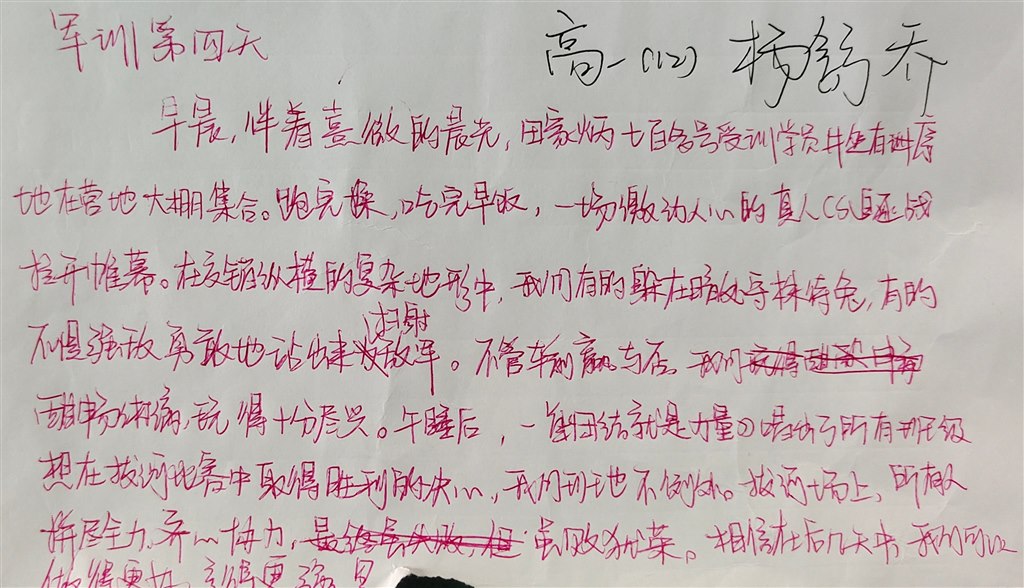 军训第四天
高一(12) 杨舒乔
早晨,伴着熹微的晨光,田家炳七百名号受训学员井然有序
地在营地大棚集合。跑完操,吃完早饭,一场激动人心的真人CS对战
拉开帷幕。在交错纵横的复杂地形中,我们有的躲在暗处守株待兔,有的
不惧强敌勇敢地站出来扫射敌军。不管输赢与否 我们
酣畅淋漓,玩得十分尽兴。午睡后,一首团结就是力量唱出了所有班级
想在拔河比赛中取得胜利的决心,我们班也不例外。拔河场上,所有人
拼尽全力,齐心协力, 虽败犹荣。相信在后几天中,我们可以
做得更好,变得更强